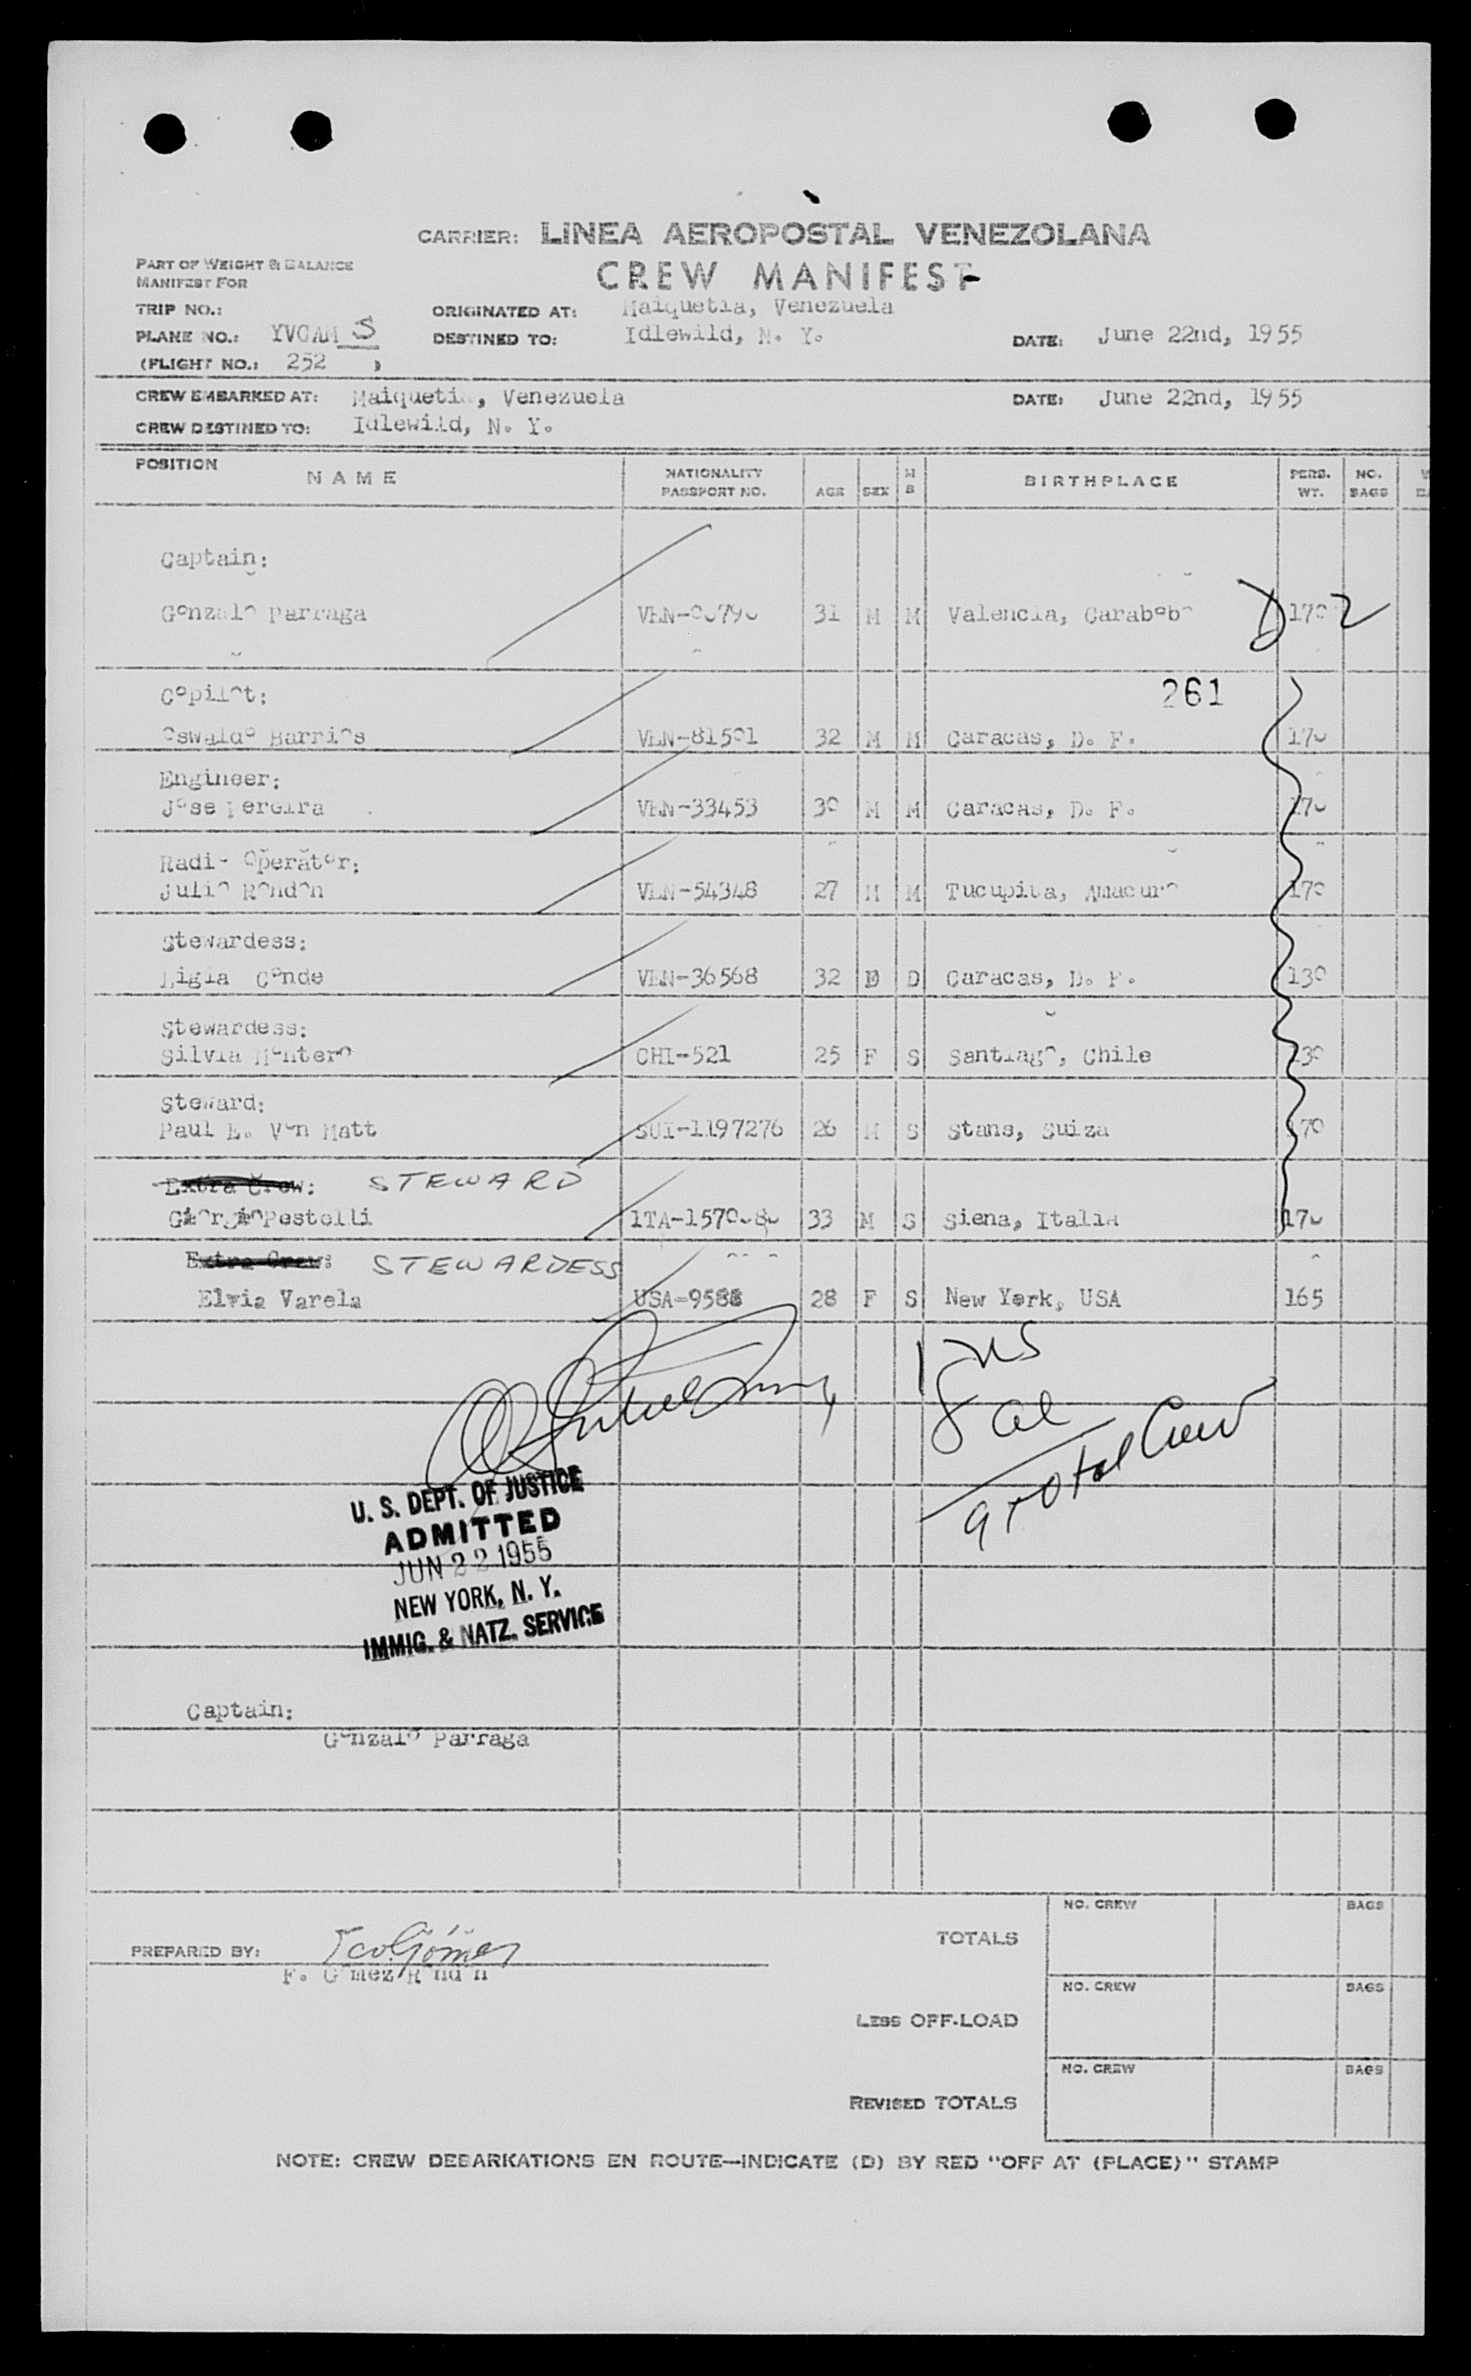 CARRIER: LINEA AEROPOSTAL VENEZOLANA
PART OF WEIGHT & BALANCE
MANIFEST FOR
CREW MANIFEST
TRIP NO.: ORIGINATED AT: Maiquetia, Venezuela
PLANE NO.: YVCAM S DESTINED TO: Idlewild, N. Y. DATE: June 22nd, 1955
(FLIGHT NO.: 252 )
CREW EMBARKED AT: Maiquetia, Venezuela DATE: June 22nd, 1955
CREW DESTINED TO: Idlewild, N. Y.
POSITION NAME NATIONALITY PASSPORT NO. AGE SEX M S BIRTHPLACE PERS. WT. NO. BAGS
Captain:
Gonzalo Parraga 31 M M Valencia, Carabobo D 170 2
Copilot: 261
Oswaldo Barrios VEN-81501 32 M M Caracas, D. F. 170
Engineer:
Jose Pereira VEN-33453 30 M M Caracas, D. F. 170
Radio Operator:
Julio Rondon VEN-54348 27 M M Tucupita, Amacuro 170
Stewardess:
Ligia Conde VEN-36568 32 D Caracas, D. F. 130
Stewardess:
Silvia Montero CHI-521 25 F S Santiago, Chile 130
Steward:
Paul E. Von Matt SUI-1197276 26 M S Stans, Suiza 170
Extra Crew: STEWARD
Giorgio Pestelli 33 M S Siena, Italia 170
Extra Crew: STEWARDESS
Elvia Varela USA-9588 28 F S New York, USA 165
1 US
8 al
9 Total Crew
U. S. DEPT. OF JUSTICE
ADMITTED
JUN 22 1955
NEW YORK, N. Y.
IMMIG. & NATZ. SERVICE
Captain:
Gonzalo Parraga
PREPARED BY: Fco Gómez
F. Gomez Rondon
TOTALS NO. CREW BAGS
LESS OFF-LOAD NO. CREW BAGS
REVISED TOTALS NO. CREW BAGS
NOTE: CREW DEBARKATIONS EN ROUTE—INDICATE (D) BY RED "OFF AT (PLACE)" STAMP